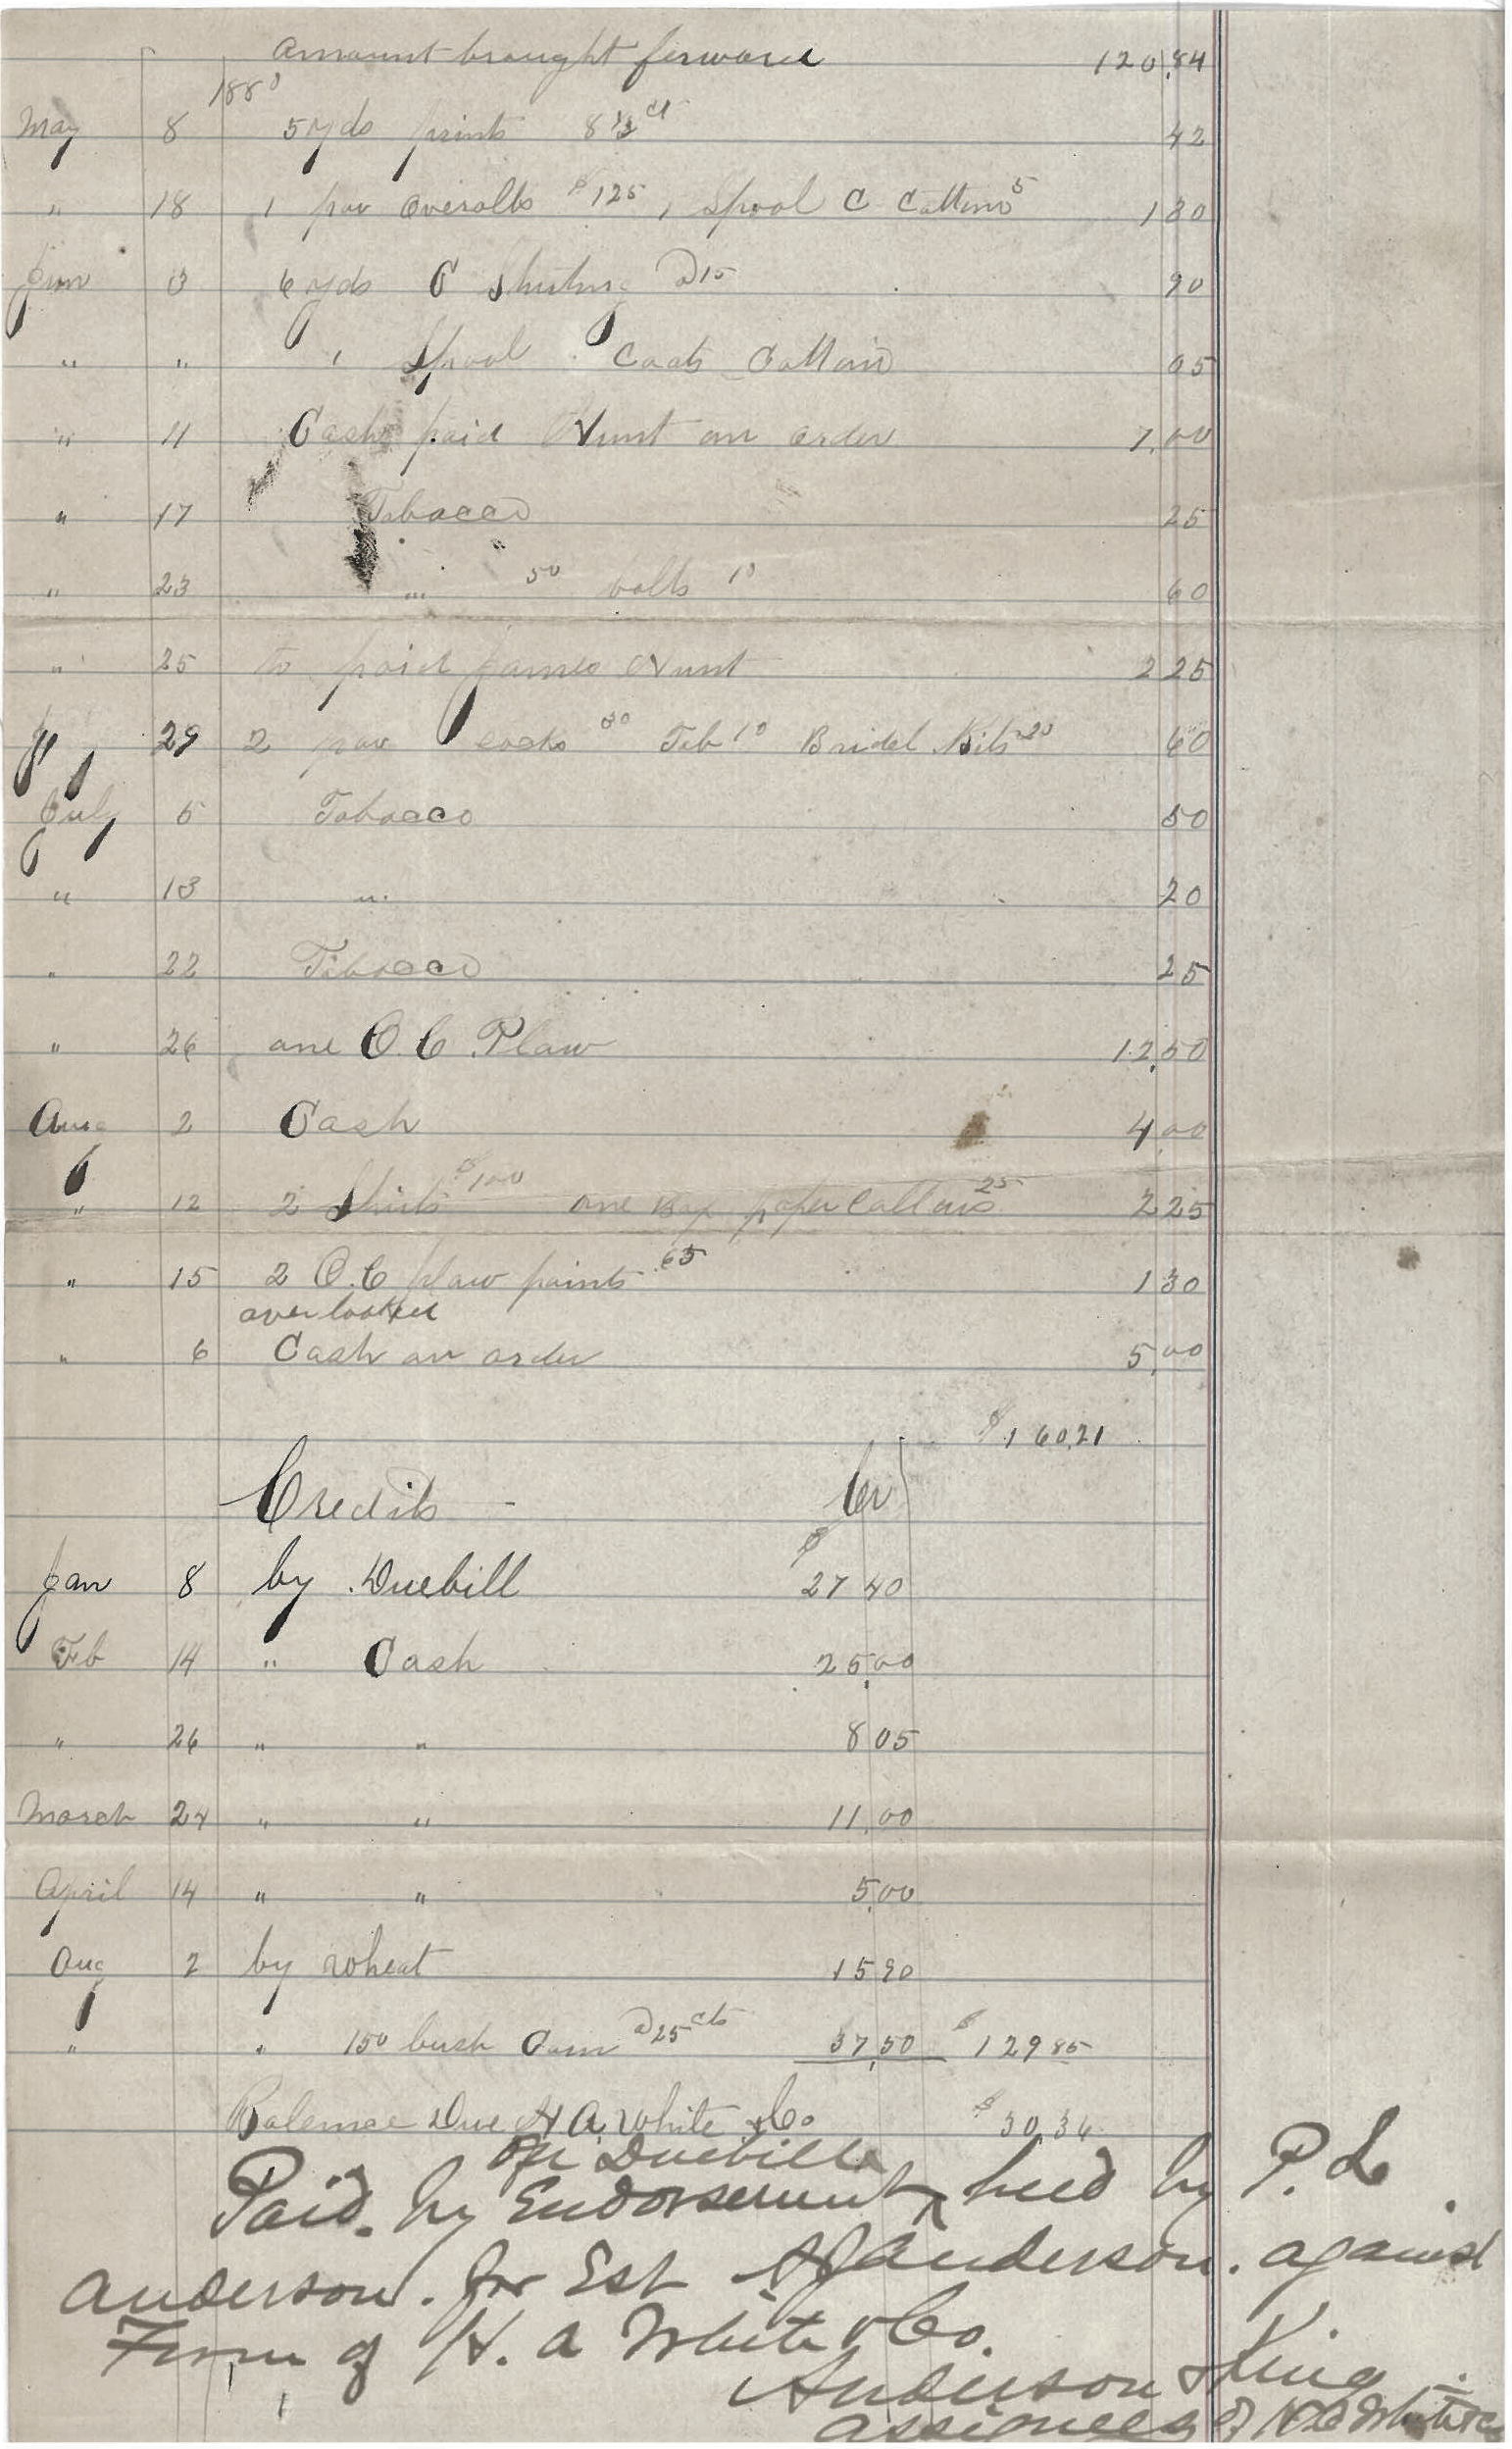 Amount brought forward 120,84
1880
May 8 5 yds prints 8 1/3 ct 42
" 18 1 par overalls $125 1 Spool C Cotton 5 1 30
Jun 3 6 yds C Shirting @15 90
" " 1 Spool Coats Cotton 05
" 11 Cash paid Hunt on order 1,00
" 17 Tobacco 25
" 23 " 50 bolts 10 60
" 25 to paid James Hunt 2 25
" 29 2 par socks 30 Tob 10 Bridel Bits 20 60
July 5 Tobacco 50
" 13 " 20
" 22 Tobacco 25
" 26 one O.C. Plow 12,50
Aug 2 Cash 4,00
" 12 2 Shirts $100 one Box paper Collars 25 2 25
" 15 2 O.C plow points 65 1 30
over looked
" 6 Cash on order 5,00
$160,21
Credits Cr
$
Jan 8 by Duebill 27 40
Feb 14 " Cash 25,00
" 26 " " 8 05
March 24 " " 11,00
April 14 " " 5,00
Aug 2 by wheat 15 90
" " 150 bush Corn @25 cts 37,50 $129 85
Balance Due H A White & Co $30,36
on Duebills
Paid. by Endorsement held by P. L.
Anderson. for Est Anderson. against
Firm of H. A White & Co.
Anderson & King
assignees of H A White & Co